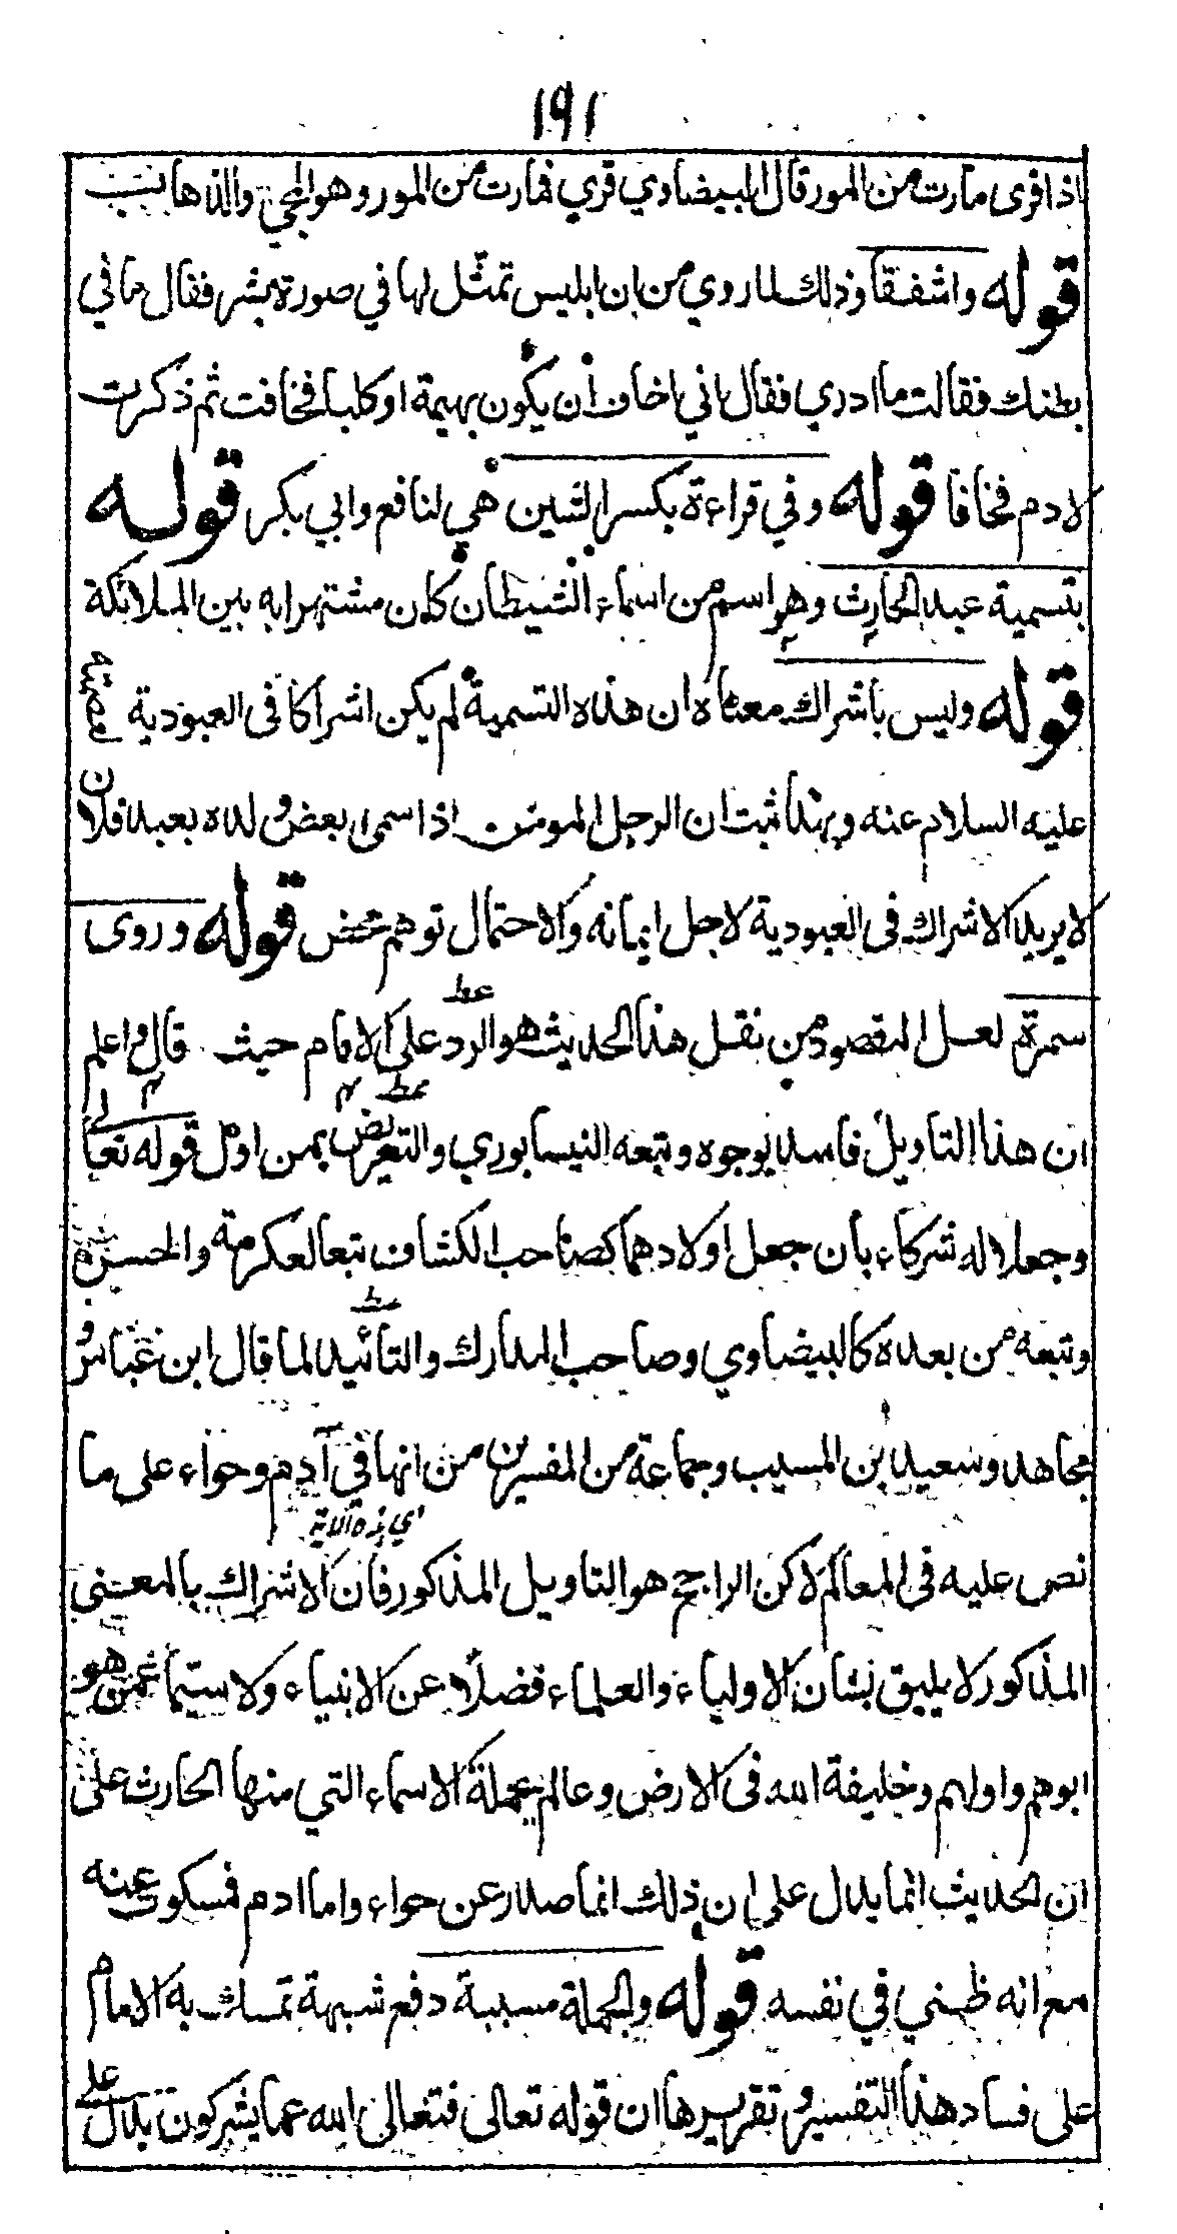 ١٩١
اذا قرى مارت من المور قال البيضاوي قري فمارت من المور وهو المجي والذهاب
قوله واشفقا وذلك لما روي من ان ابليس تمثل لها في صورة بشر فقال ما في
بطنك فقالت ما ادري فقال اني اخاف أن يكون بهيمة او كلبا فخافت ثم ذكرت
لادم فخافا قوله وفي قراءة بكسر الشين هي لنافع وابي بكر قوله
بتسمية عبد الحارث وهو اسم من اسماء الشيطان كان مشتهرا به بين الملائكة
قوله وليس باشراك معناه ان هذه التسمية لم يكن اشراكا في العبودية
عليه السلام عنه وبهذا ثبت ان الرجل المومن اذا سمى بعض ولده بعبد فلان
لا يريد الاشراك في العبودية لاجل ايمانه والاحتمال توهم محض قوله وروى
سمرة لعل المقصود من نقل هذا الحديث هو الرد على الامام حيث قال واعلم
ان هذا التاويل فاسد بوجوه وتبعه النيسابوري والتعريض بمن اول قوله تعالى
وجعلا له شركاء بان جعل اولادهما كصاحب الكشاف تبعا لعكرمة والحسن
وتبعه من بعده كالبيضاوي وصاحب المدارك والتائيد لما قال ابن عباس و
مجاهد وسعيد بن المسيب وجماعة من المفسرين من انها في آدم وحواء على ما
اي هذه الاية
نص عليه في المعالم لاكن الراجح هو التاويل المذكور فان الاشراك بالمعنى
المذكور لا يليق بشان الاولياء والعلماء فضلا عن الانبياء ولا سيما عمن هو
ابوهم واولهم وخليفة الله في الارض وعالم بجملة الاسماء التي منها الحارث على
ان الحديث انما يدل على ان ذلك انما صدر عن حواء واما ادم فمسكوت عنه
مع انه ظني في نفسه قوله والجملة مسببة دفع شبهة تمسك به الامام
على فساد هذا التفسير وتقريرها ان قوله تعالى فتعالى الله عما يشركون يدل على